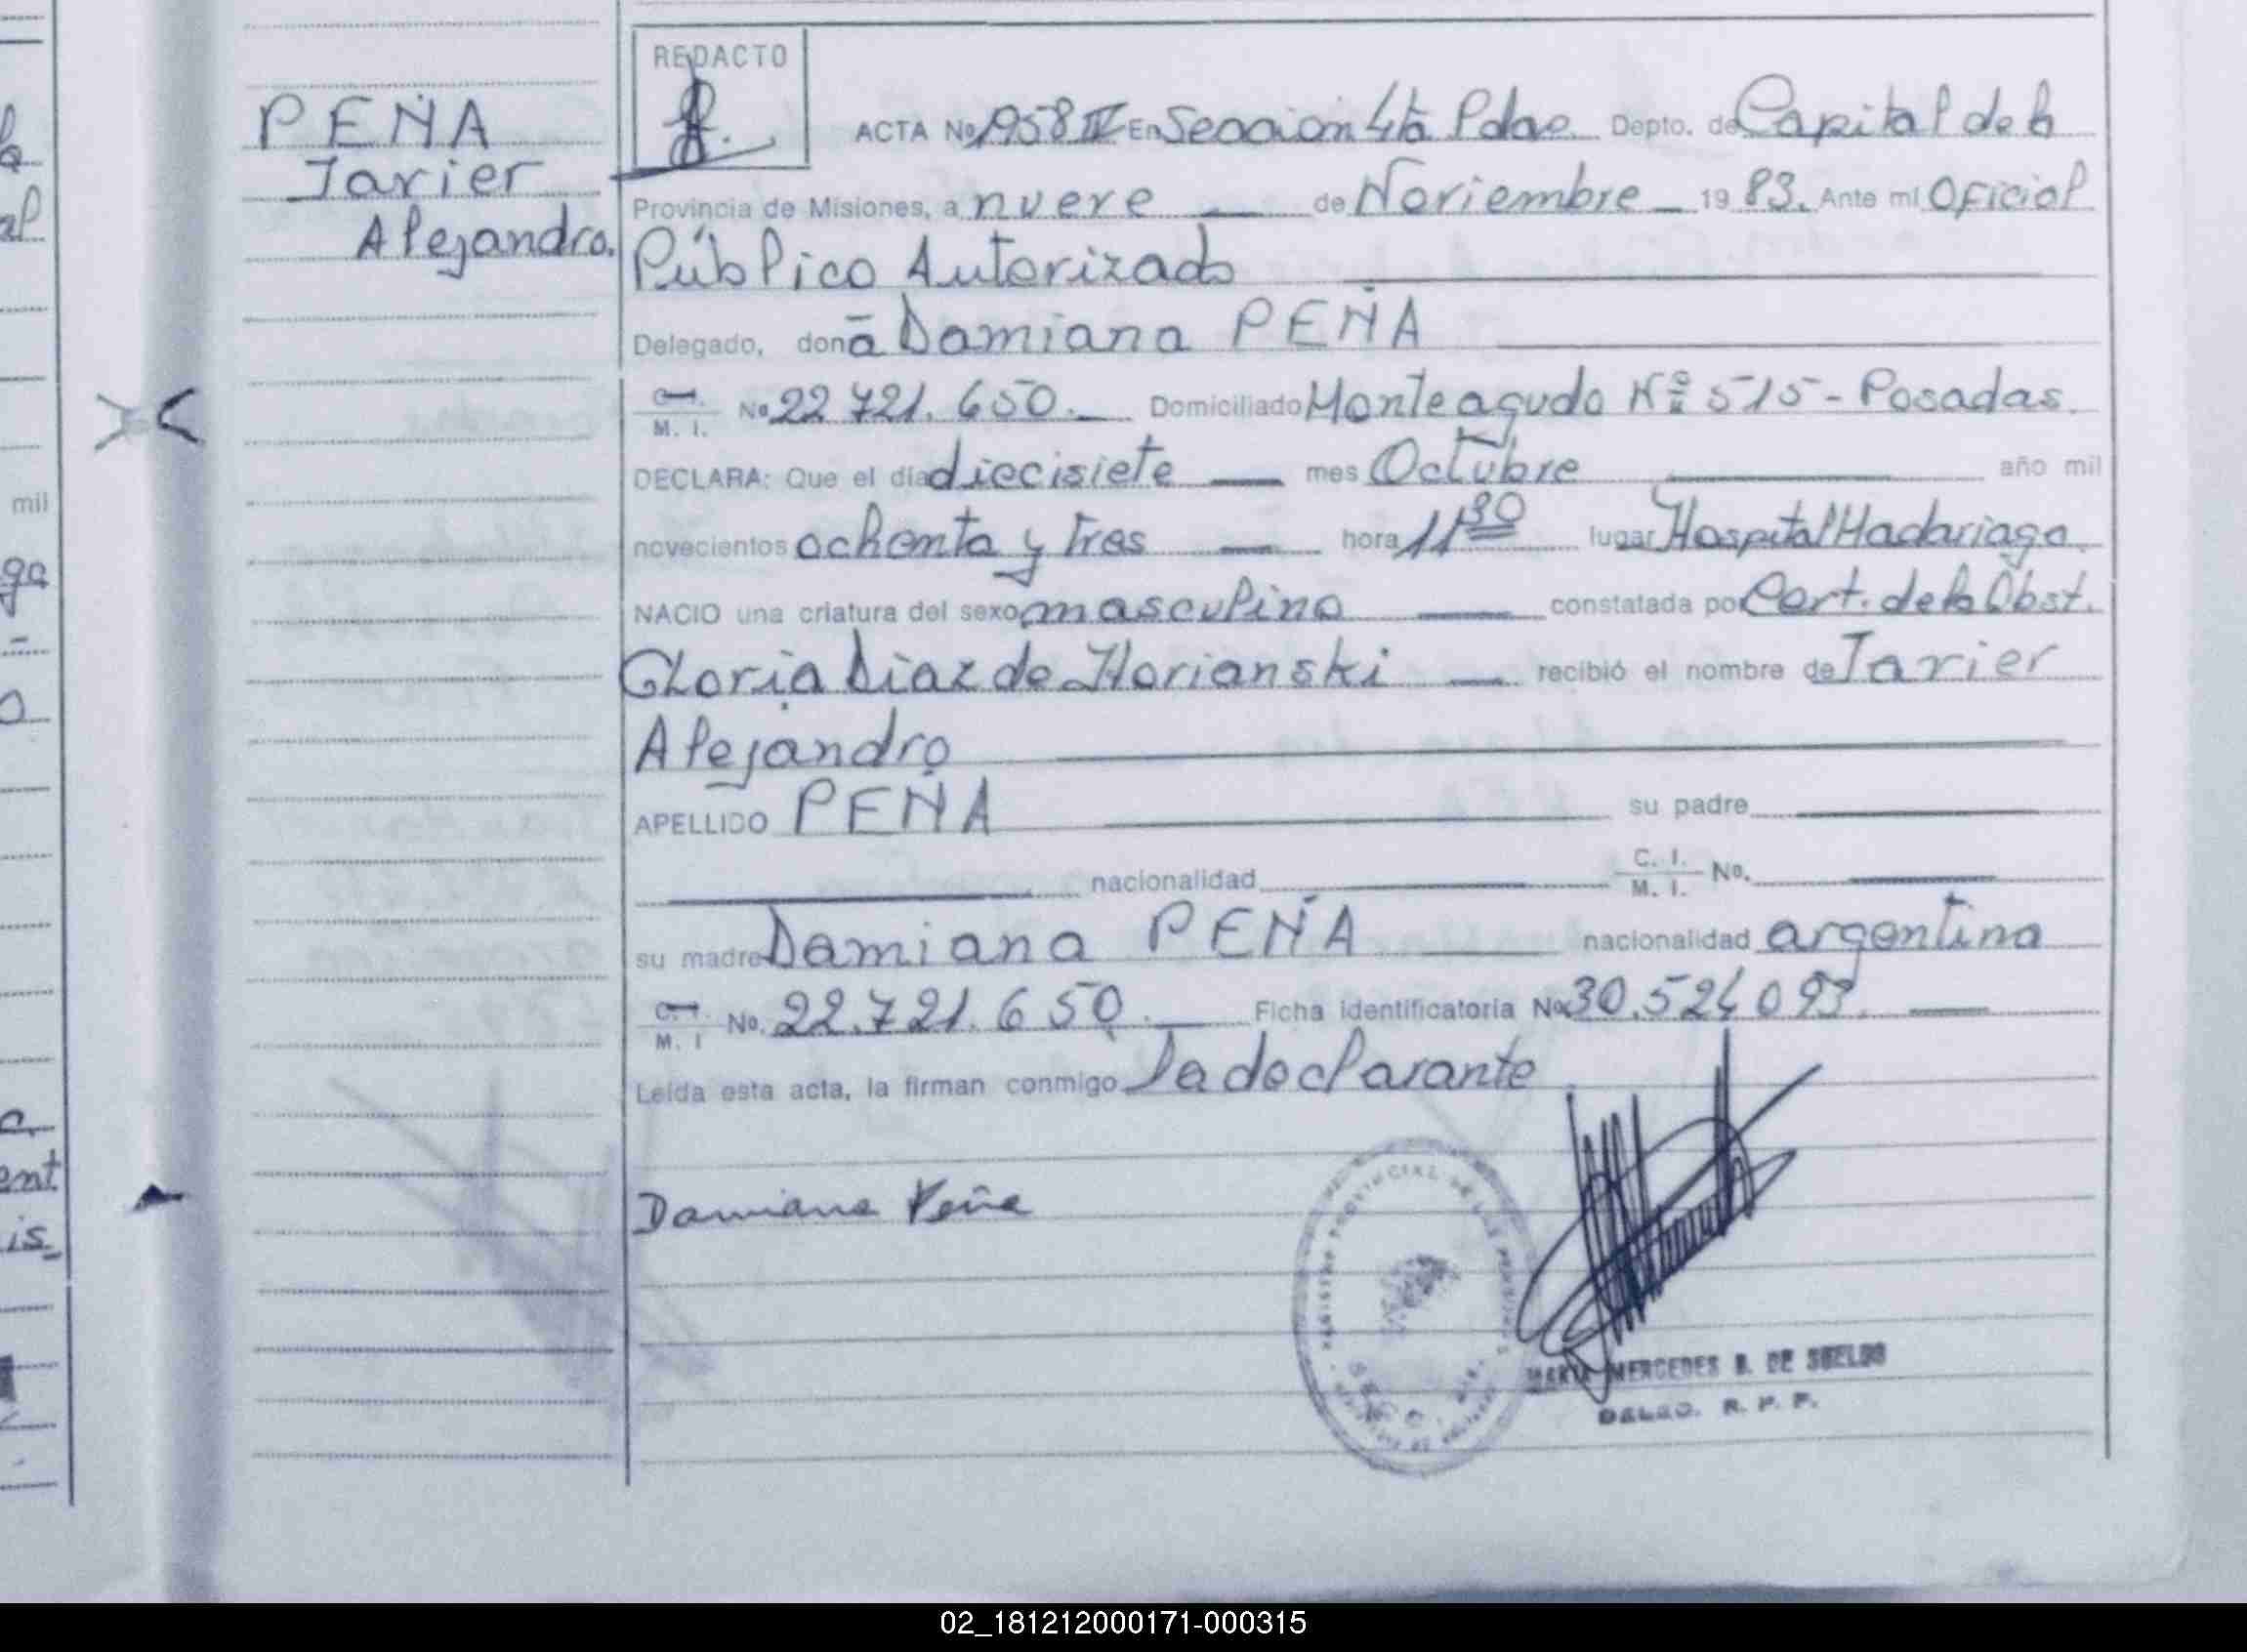 PEÑA
Javier
Alejandro.
REDACTO
ACTA No 1958 IV En Sección 4ta Pdas. Depto. de Capital de la
Provincia de Misiones, a nueve de Noviembre 1983. Ante mi Oficial
Público Autorizado
Delegado, doña Damiana PEÑA
C. I. M. I. No 22.721.650. Domiciliado Monteagudo Nº 515 - Posadas.
DECLARA: Que el día diecisiete mes Octubre año mil
novecientos ochenta y tres hora 11 30 lugar Hospital Madariaga
NACIO una criatura del sexo masculino constatada por Cert. de la Obst.
Gloria Diaz de recibió el nombre de Javier
Alejandro
APELLIDO PEÑA su padre
nacionalidad C. I. M. I. No.
su madre Damiana PEÑA nacionalidad argentina
C. I. M. I No. 22.721.650. Ficha identificatoria No 30.524.093.
Leída esta acta, la firman conmigo la declarante
Damiana Peña
MARIA MERCEDES B. DE
DELEG. R. P. P.
mil
02_181212000171-000315